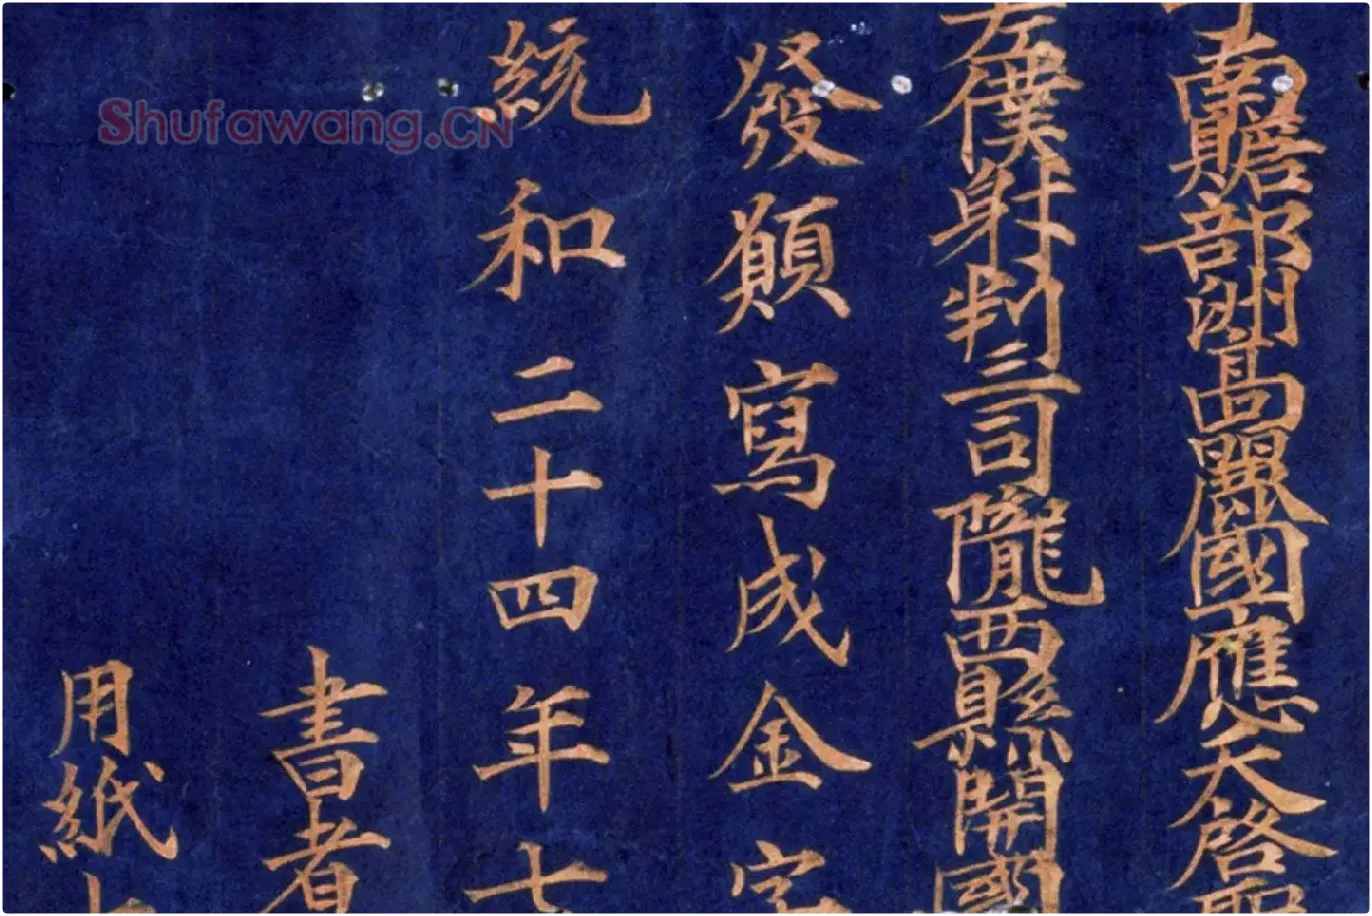 南贍部洲高麗國應天啓聖
左僕射判三司隴西縣開國
發願寫成金字
統和二十四年七
書者
用紙七
Shufawang.CN